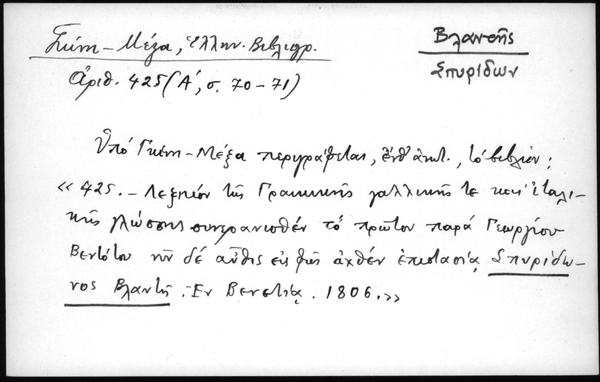 Γκίνη - Μέξα, Ἑλλην. Βιβλιογρ.
Βλαντῆς
Σπυρίδων
ἀριθ. 425 (Α΄, σ. 70-71)
Ὑπὸ Γκίνη - Μέξα περιγράφεται, ἐνθ' ἀνωτ., τὸ βιβλίον:
« 425. - Λεξικὸν τῆς Γραικικῆς γαλλικῆς τε καὶ ἰταλι-
κῆς γλώσσης συνερανισθὲν τὸ πρῶτον παρὰ Γεωργίου
Βεντότου νῦν δὲ αὖθις εἰς φῶς ἀχθὲν ἐπιστασίᾳ Σπυρίδω-
νος Βλαντῆ. Ἐν Βενετίᾳ. 1806.»